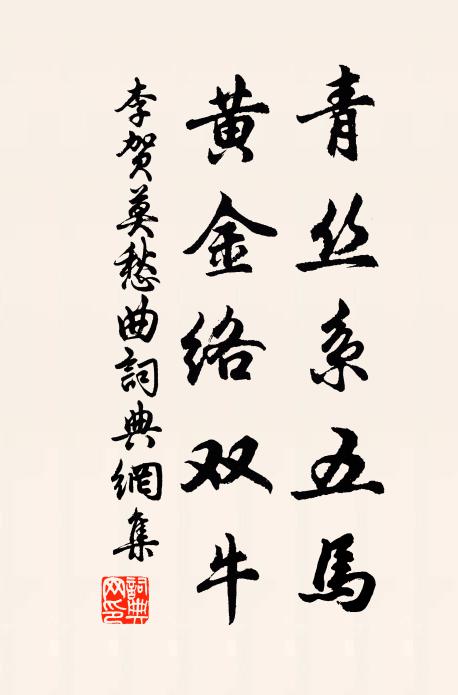 青丝系五馬
黄金络双牛
李贺莫愁曲詞典網集
詞典网印